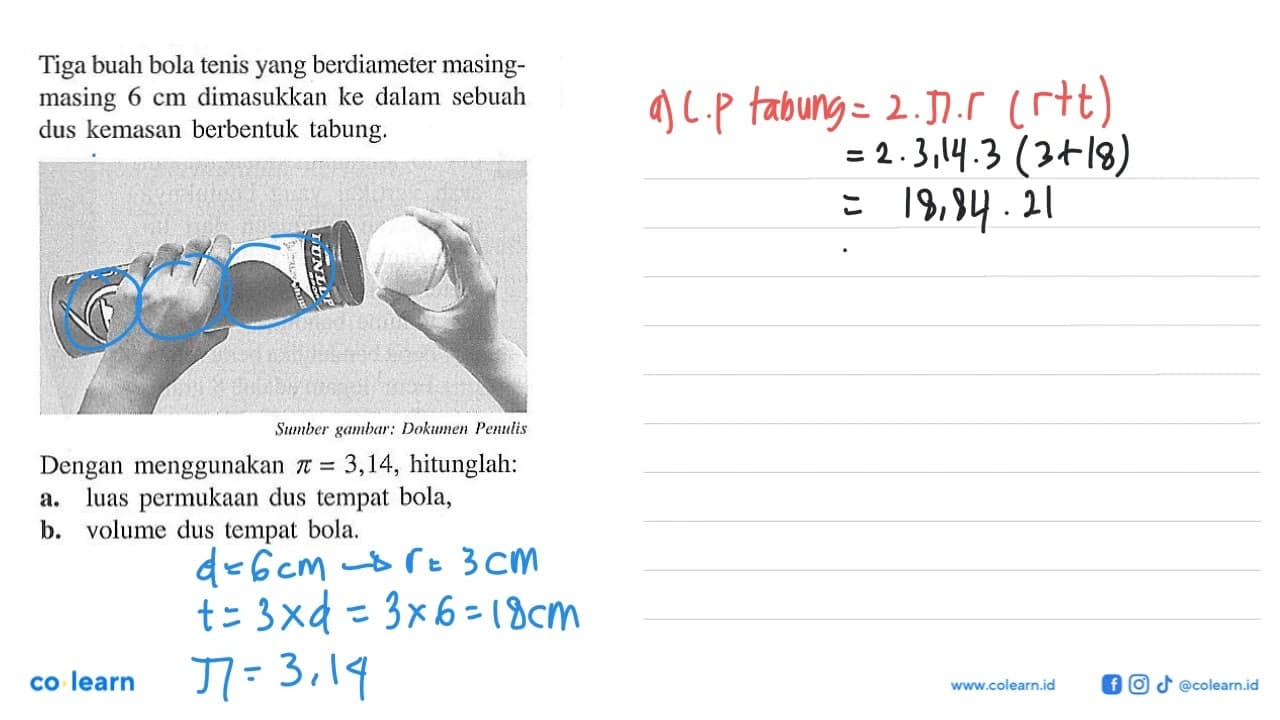 Tiga buah bola tenis yang berdiameter masing-
masing 6 cm dimasukkan ke dalam sebuah
dus kemasan berbentuk tabung.
Sumber gambar: Dokumen Penulis
Dengan menggunakan π = 3,14, hitunglah:
a. luas permukaan dus tempat bola,
b. volume dus tempat bola.
d = 6 cm → r = 3 cm
t = 3 x d = 3 x 6 = 18 cm
π = 3,14
a) L.P tabung = 2.π.r (r+t)
= 2.3,14.3 (3+18)
= 18,84 . 21
co learn
www.colearn.id
@colearn.id